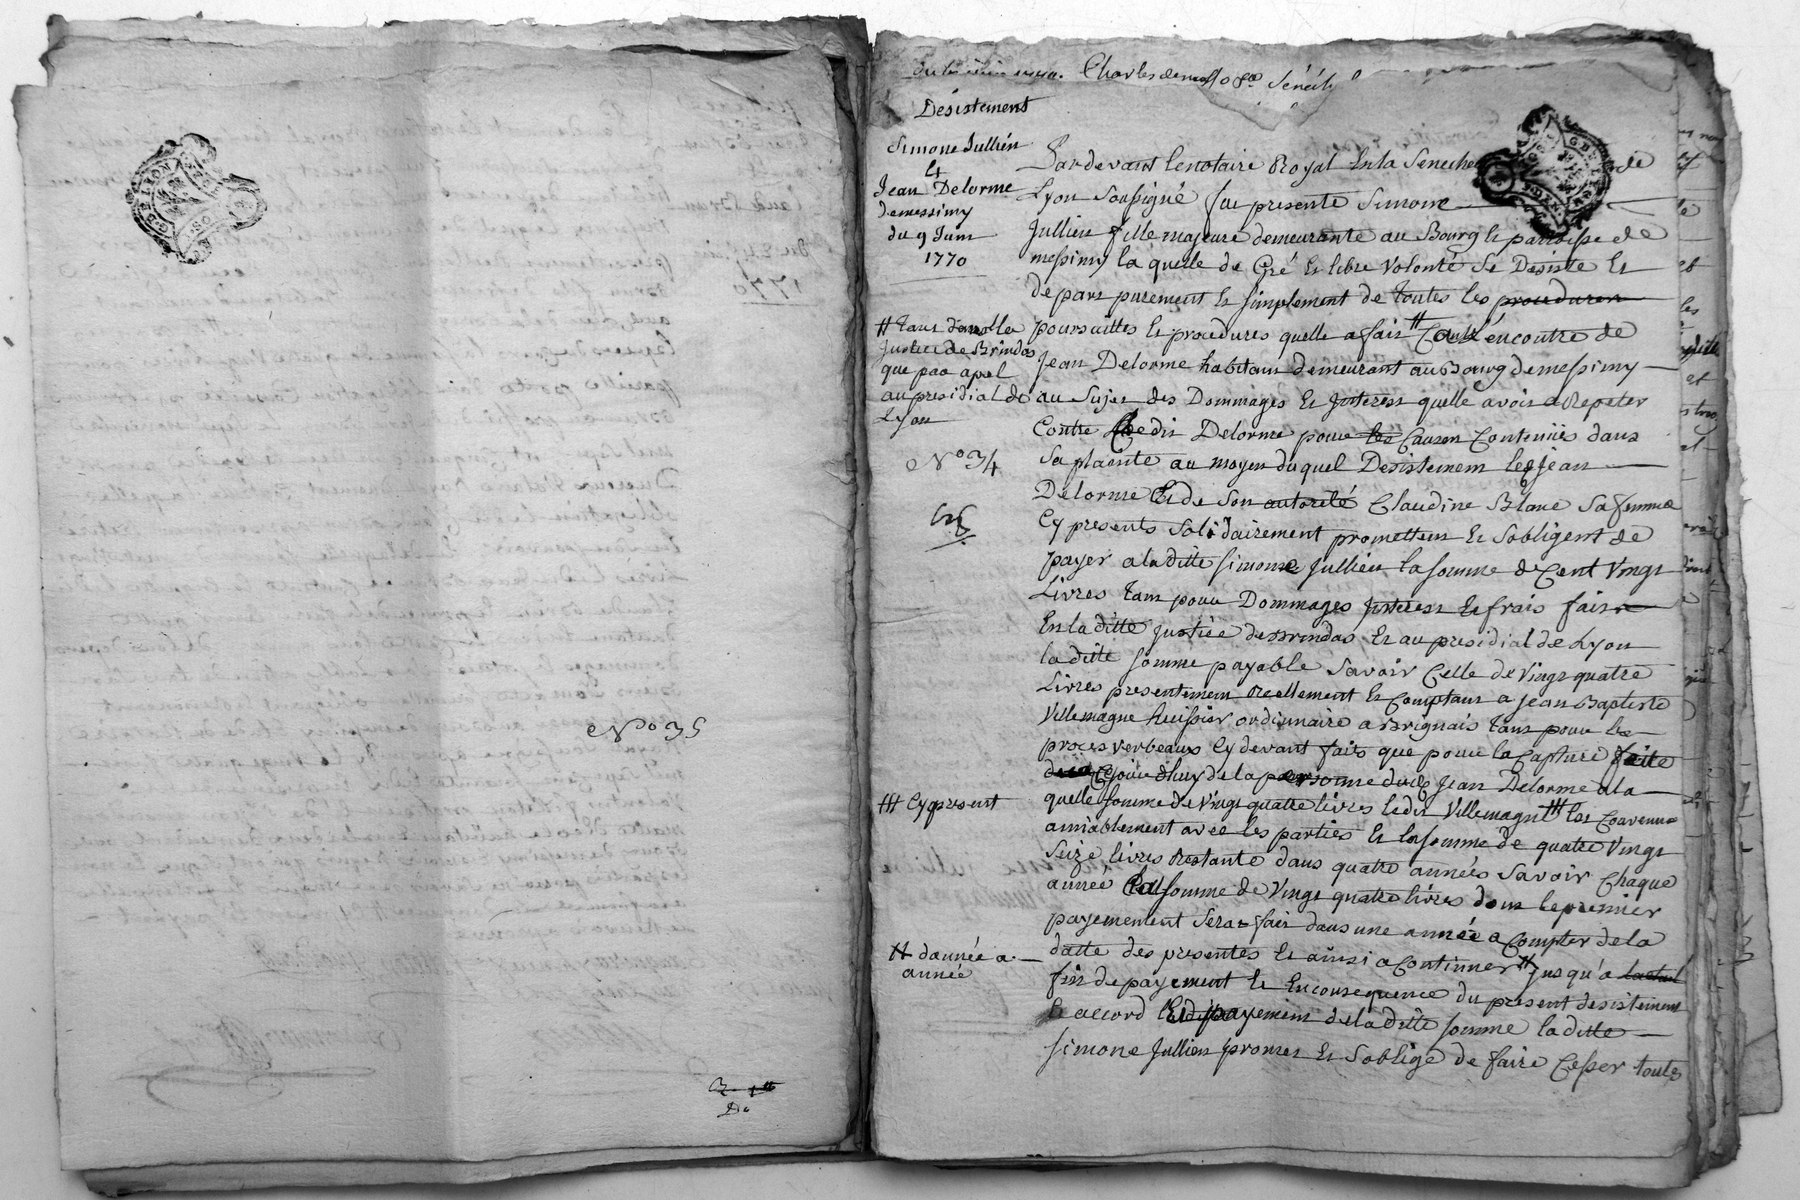 N° 35
Désistement
Simone Jullien
&
Jean Delorme
demessimy
du 9 Juin
1770
Pardevant lenotaire Royal Enla Senech de
Lyon Soussigné fut presente Simone
Jullien fille majeure demeurante au Bourg Et parroisse de
messimy la quelle de Gré Et libre Volonté Se Desiste Et
depart purement Et simplement de toutes les procedures
poursuittes Et procedures quelle a fait # Contre Lencontre de
Jean Delorme habitant demeurant au Bourg demessimy
au Sujet des Dommages Et Interest quelle avoit a Repeter
Contre Ledit Delorme pour les Causes Contenües dans
Sa plainte au moyen duquel Desistement led jean
Delorme Et de Son autorité Claudine Blanc Sa femme
Cy presents Solidairement promettent Et Sobligent de
payer aladitte simone Jullien la somme de Cent Vingt
Livres tant pour Dommages Interest Et frais faits
Enla ditte Justice deBrindas Et au presidial de Lyon
la ditte somme payable Savoir Celle de Vingt quatre
Livres presentement Reellement Et Comptant a Jean Baptiste
Villemagne huissier ordinnaire a Brignais tant pour les
proces verbeaux Cy devant faits que pour la Capture faite
Cejourdhuy de la personne dud Jean Delorme a la
quelle somme de Vingt quatre livres ledit Villemagne ### Est Convenu
amiablement avec les parties Et la somme de quatre Vingt
Seize livres Restante dans quatre années Savoir Chaque
année La somme de Vingt quatre livres dont le premier
payement Sera fait dans une année a Compter de la
datte des presentes Et ainsi a Continuer # Jusqu'a
fin de payement Et Enconsequence du present desistement
Et accord Et payement deladitte somme la ditte
simone Jullien promet Et Soblige de faire Cesser toutes
# tant dans la
Justice de Brindas
que par apel
au presidial de
Lyon
N° 34
### Cy present
# dannée a
année